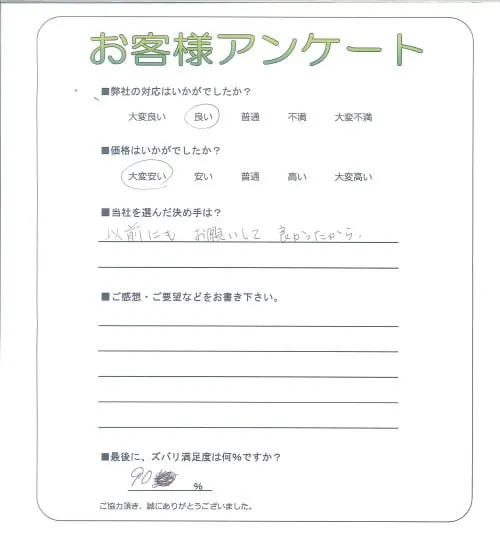 お客様アンケート
■弊社の対応はいかがでしたか？
大変良い 良い 普通 不満 大変不満
■価格はいかがでしたか？
大変安い 安い 普通 高い 大変高い
■当社を選んだ決め手は？
以前にも お願いして 良かったから.
■ご感想・ご要望などをお書き下さい。
■最後に、ズバリ満足度は何%ですか？
90 %
ご協力頂き、誠にありがとうございました。